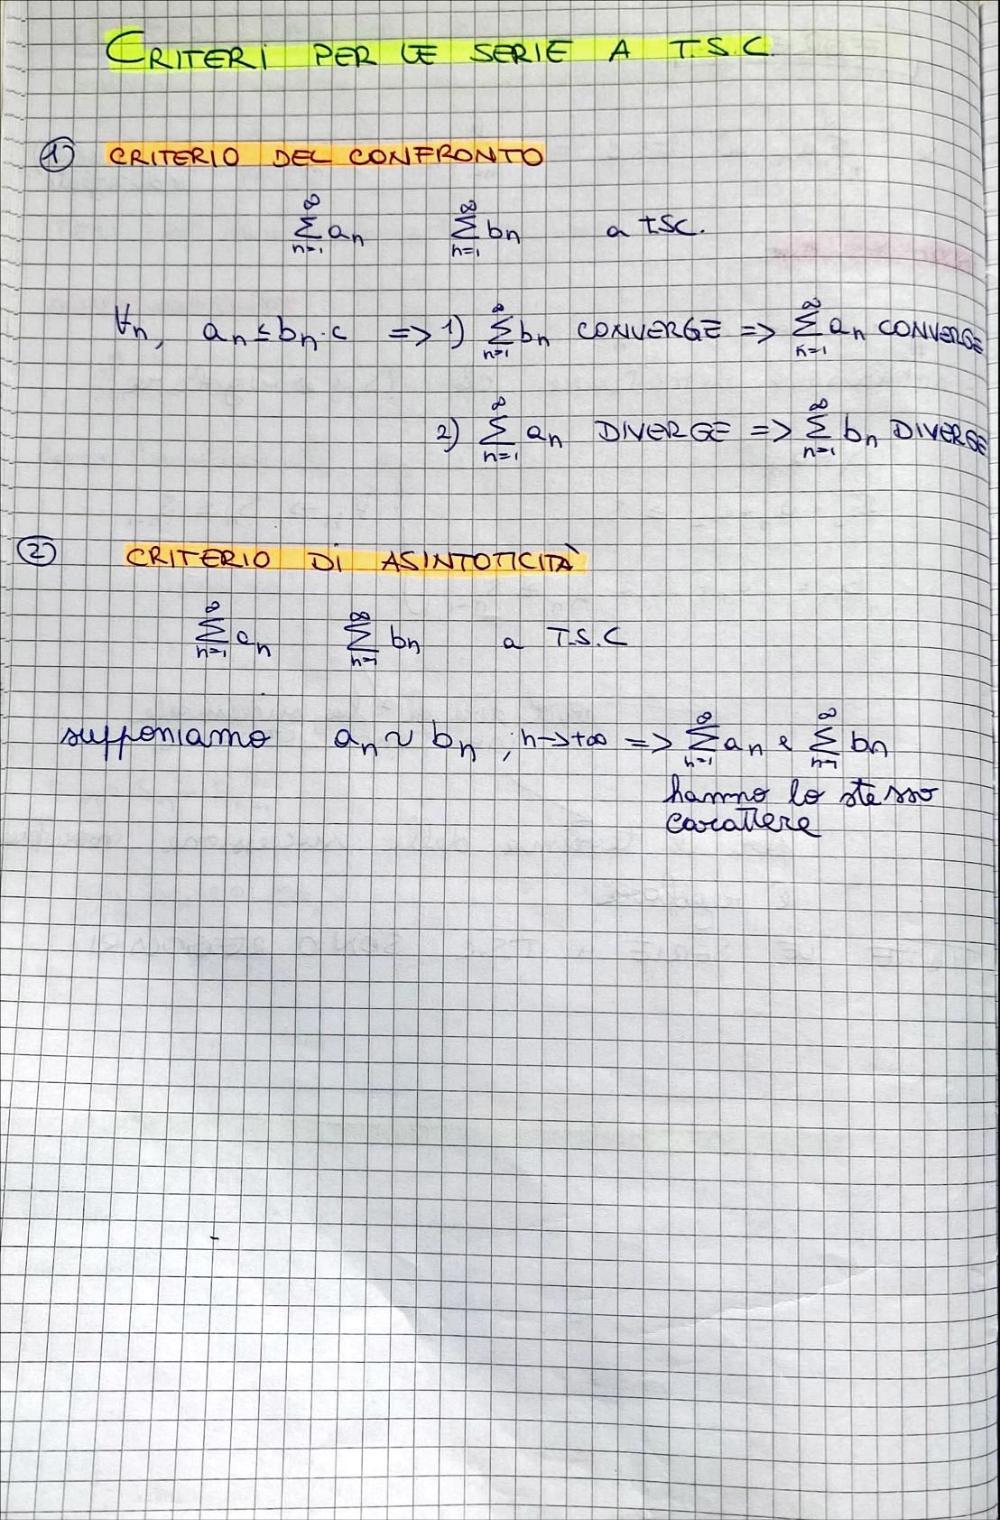 CRITERI PER LE SERIE A T.S.C.
① CRITERIO DEL CONFRONTO
∞∑n=1 an ∞∑n=1 bn a TSC.
∀n, an ≤ bn · c => 1) ∞∑n=1 bn CONVERGE => ∞∑n=1 an CONVERGE
2) ∞∑n=1 an DIVERGE => ∞∑n=1 bn DIVERGE
② CRITERIO DI ASINTOTICITÀ
∞∑n=1 an ∞∑n=1 bn a T.S.C
supponiamo an ~ bn ; n->+∞ => ∞∑n=1 an e ∞∑n=1 bn
hanno lo stesso
carattere